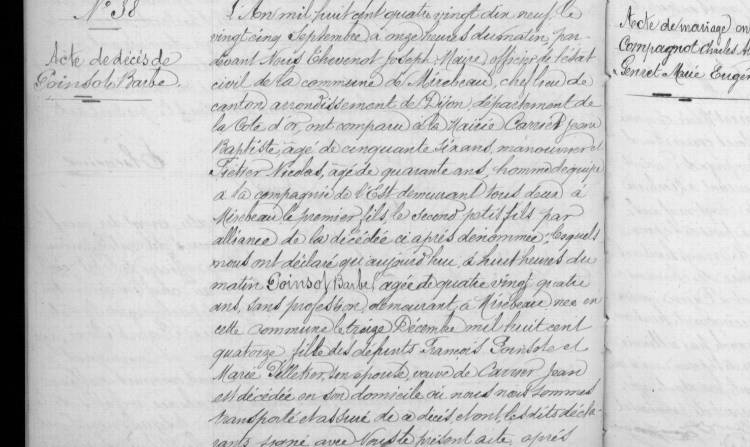 N° 38
Acte de décès de
Poinsot Barbe.
L'An mil huit cent quatre vingt dix neuf, le
vingt cinq Septembre à onze heures du matin, par-
devant Nous Thevenot Joseph, Maire, officier de l'état
civil de la commune de Mirebeau, chef lieu de
canton arrondissement de Dijon, département de
la Côte d'or, ont comparu à la Mairie Carrier Jean
Baptiste, âgé de cinquante six ans, manouvrier et
Nicolas, âgé de quarante ans, homme d'équipe
à la compagnie de l'Est demeurant tous deux à
Mirebeau le premier, fils, le second petit fils par
alliance de la décédée ci après dénommée; lesquels
nous ont déclaré qu'aujourd'hui, à huit heures du
matin Poinsot Barbe, âgée de quatre vingt quatre
ans, sans profession, demeurant à Mirebeau née en
cette commune le treize Décembre mil huit cent
quatorze, fille des défunts François Poinsot et
Marie Pelletier, son épouse, veuve de Carrier Jean
est décédée en son domicile où nous nous sommes
transporté et assuré de ce décès, et ont, les dits décla-
rants signé avec Nous le présent acte, après
Acte de mariage
Compagnot Charles
Genret Marie Eugén